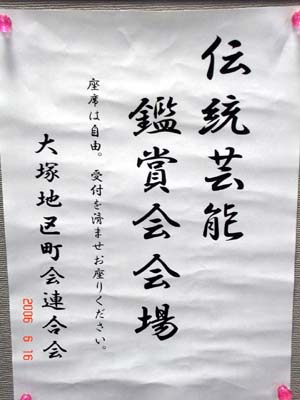 伝統芸能
鑑賞会会場
座席は自由。受付を済ませお座りください。
大塚地区町会連合会
2006 6 16